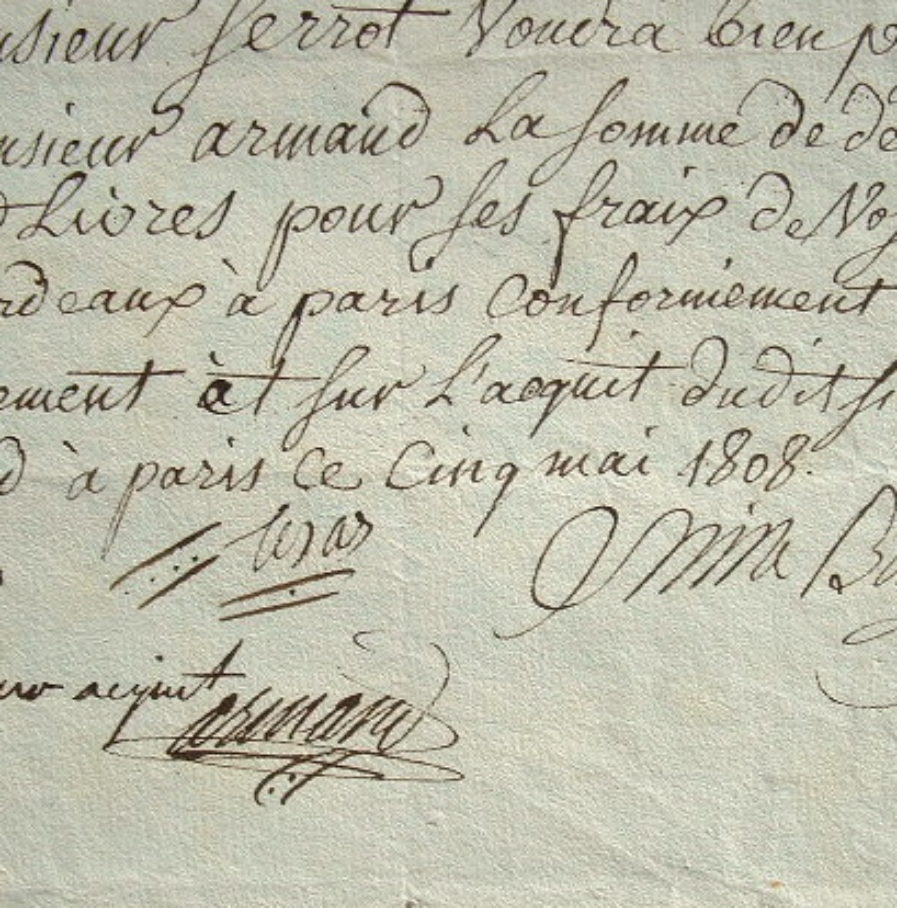 nsieur Serrot Voudra bien p
nsieur armand La Somme de de
Livres pour ses fraix de Voy
rdeaux à paris Conformement
ement èt sur L'acquit dudit Si
d à paris ce Cinq mai 1808.
acquit armand